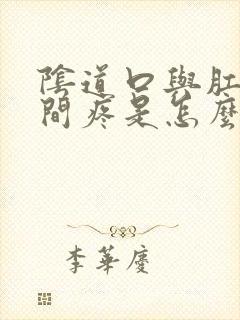 陰道口與肛
間疼是怎麼
李華慶